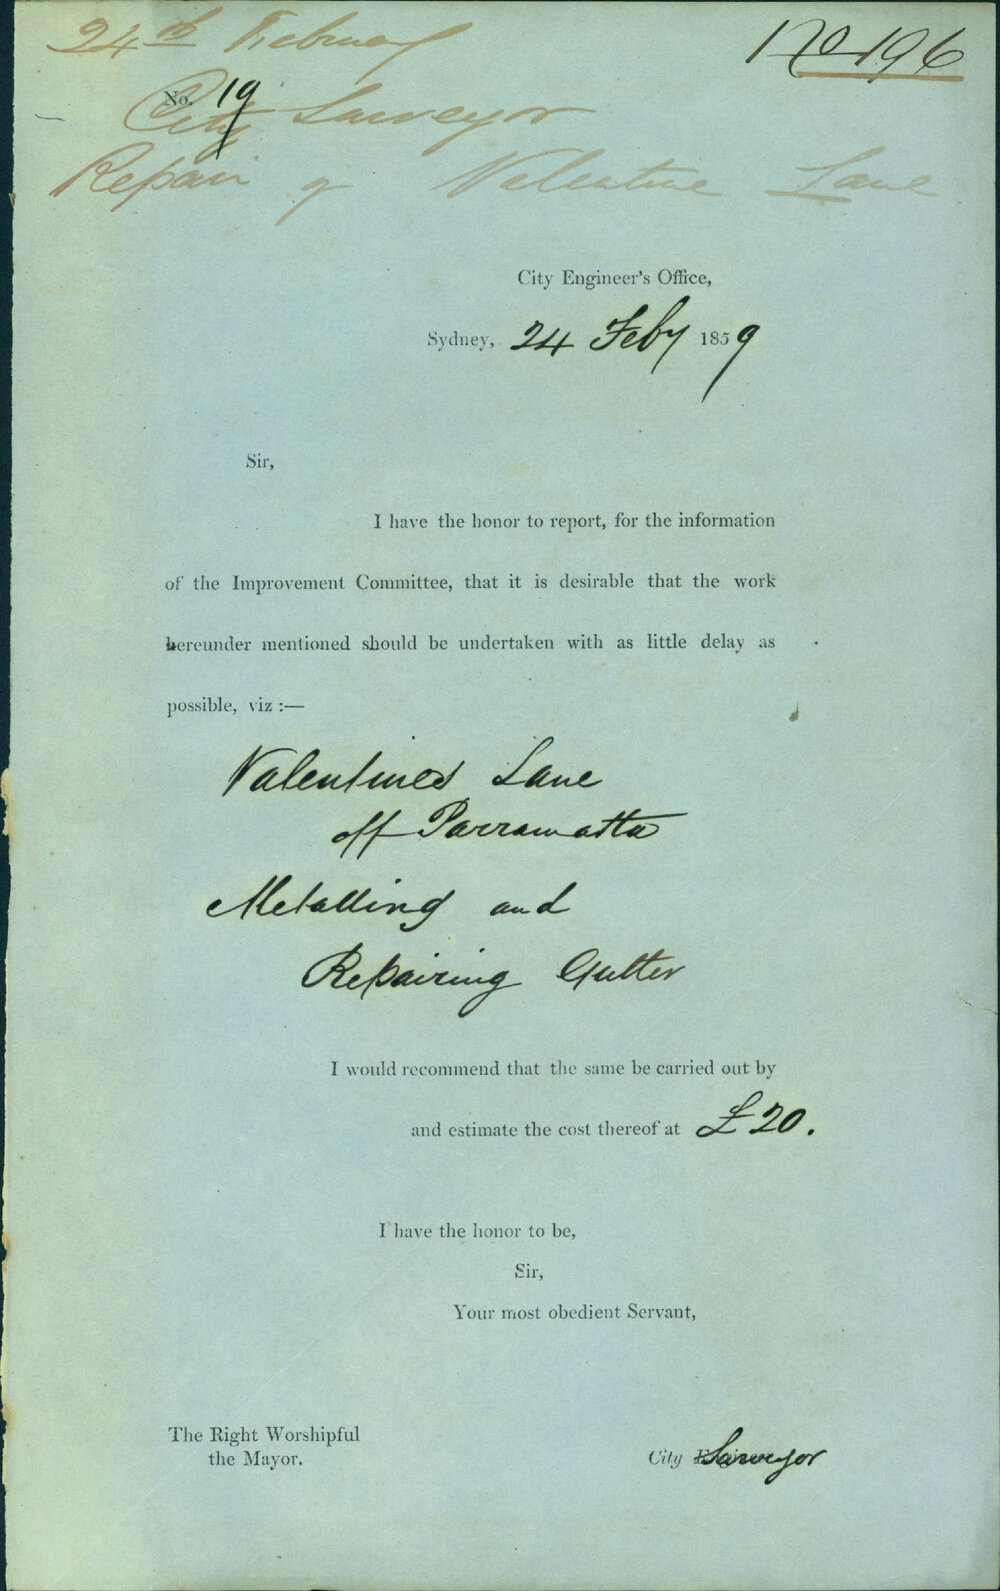 24th February
No 196
No. 19
City Surveyor
Repair of Valentine Lane
City Engineer's Office,
Sydney, 24 Feby 1859
Sir,
I have the honor to report, for the information
of the Improvement Committee, that it is desirable that the work
hereunder mentioned should be undertaken with as little delay as
possible, viz :—
Valentines Lane
off Parramatta
Metalling and
Repairing Gutter
I would recommend that the same be carried out by
and estimate the cost thereof at £20.
I have the honor to be,
Sir,
Your most obedient Servant,
The Right Worshipful
the Mayor.
City Surveyor